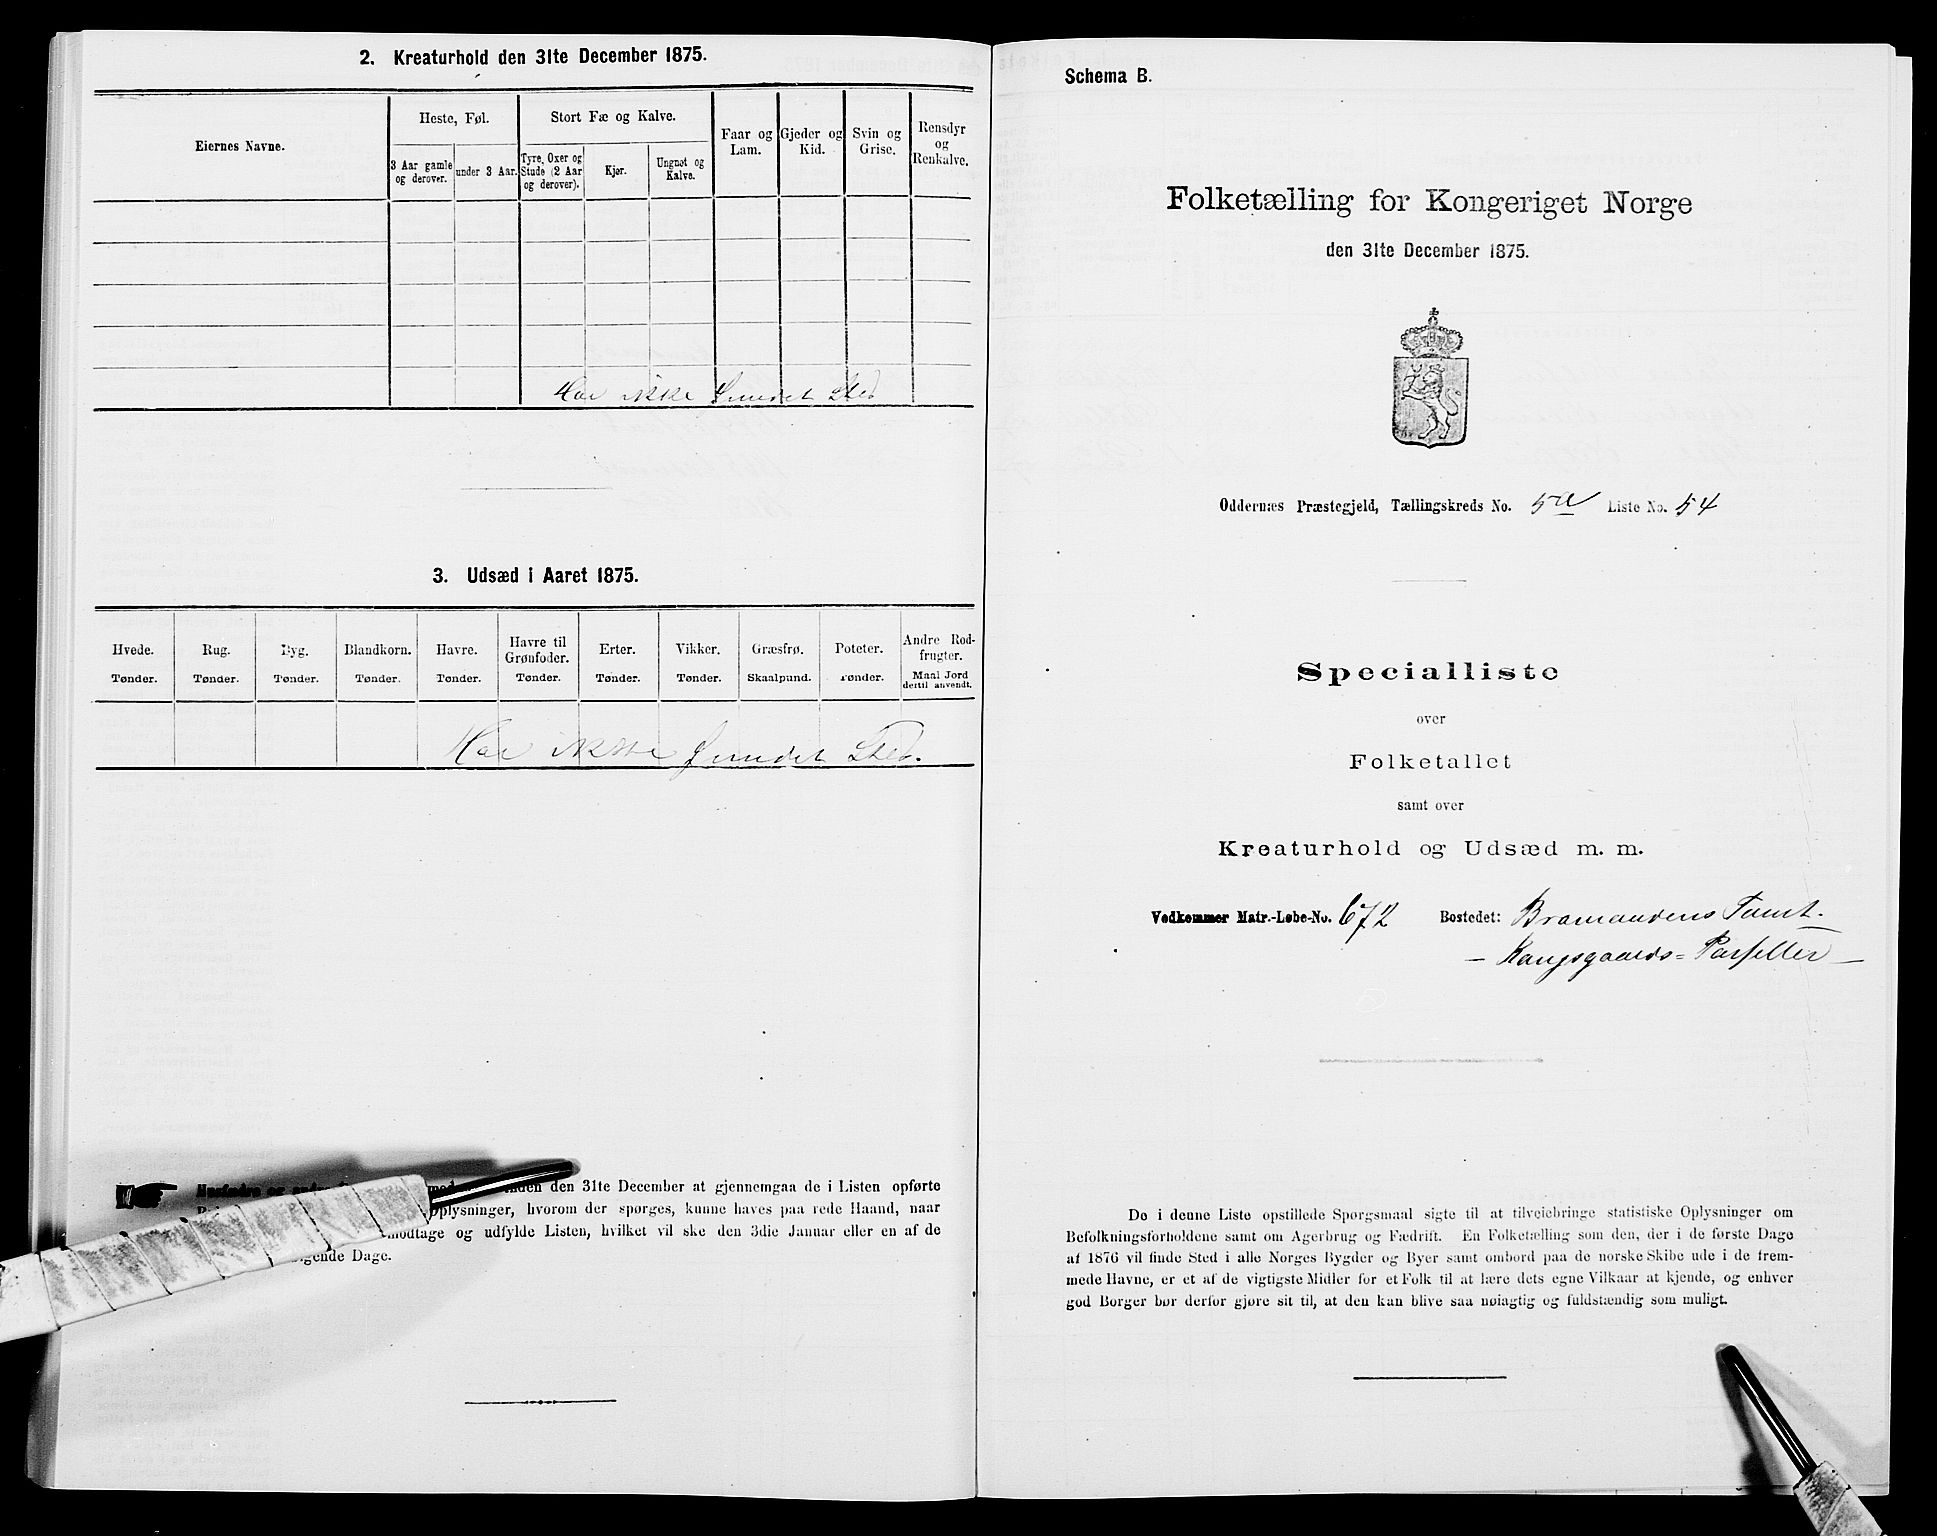 2. Kreaturhold den 31te December 1875.
Eiernes Navne.
Heste, Føl.
Stort Fæ og Kalve.
Faar og Lam.
Gjeder og Kid.
Svin og Grise.
Rensdyr og Renkalve.
3 Aar gamle og derover.
under 3 Aar.
Tyre, Oxer og Stude (2 Aar og derover).
Kjør.
Ungnøt og Kalve.
Har ikke fundet Sted
3. Udsæd i Aaret 1875.
Hvede. Rug. Byg. Blandkorn. Havre. Havre til Grønfoder. Erter. Vikker. Græsfrø. Poteter. Andre Rodfrugter.
Tønder. Tønder. Tønder. Tønder. Tønder. Tønder. Tønder. Tønder. Skaalpund. Tønder. Maal Jord dertil anvendt.
Har ikke fundet Sted.
den 31te December at gjennemgaa de i Listen opførte
Oplysninger, hvorom der spørges, kunne haves paa rede Haand, naar
modtage og udfylde Listen, hvilket vil ske den 3die Januar eller en af de
følgende Dage.
Schema B.
Folketælling for Kongeriget Norge
den 31te December 1875.
Oddernæs Præstegjeld, Tællingskreds No. 5a Liste No. 54
Specialliste
over
Folketallet
samt over
Kreaturhold og Udsæd m. m.
Vedkommer Matr.-Løbe-No. 672 Bostedet: Bramandens Tomt.
- Kongsgaards = Parseller -
De i denne Liste opstillede Spørgsmaal sigte til at tilveiebringe statistiske Oplysninger om
Befolkningsforholdene samt om Agerbrug og Fædrift. En Folketælling som den, der i de første Dage
af 1876 vil finde Sted i alle Norges Bygder og Byer samt ombord paa de norske Skibe ude i de frem-
mede Havne, er et af de vigtigste Midler for et Folk til at lære dets egne Vilkaar at kjende, og enhver
god Borger bør derfor gjøre sit til, at den kan blive saa nøiagtig og fuldstændig som muligt.